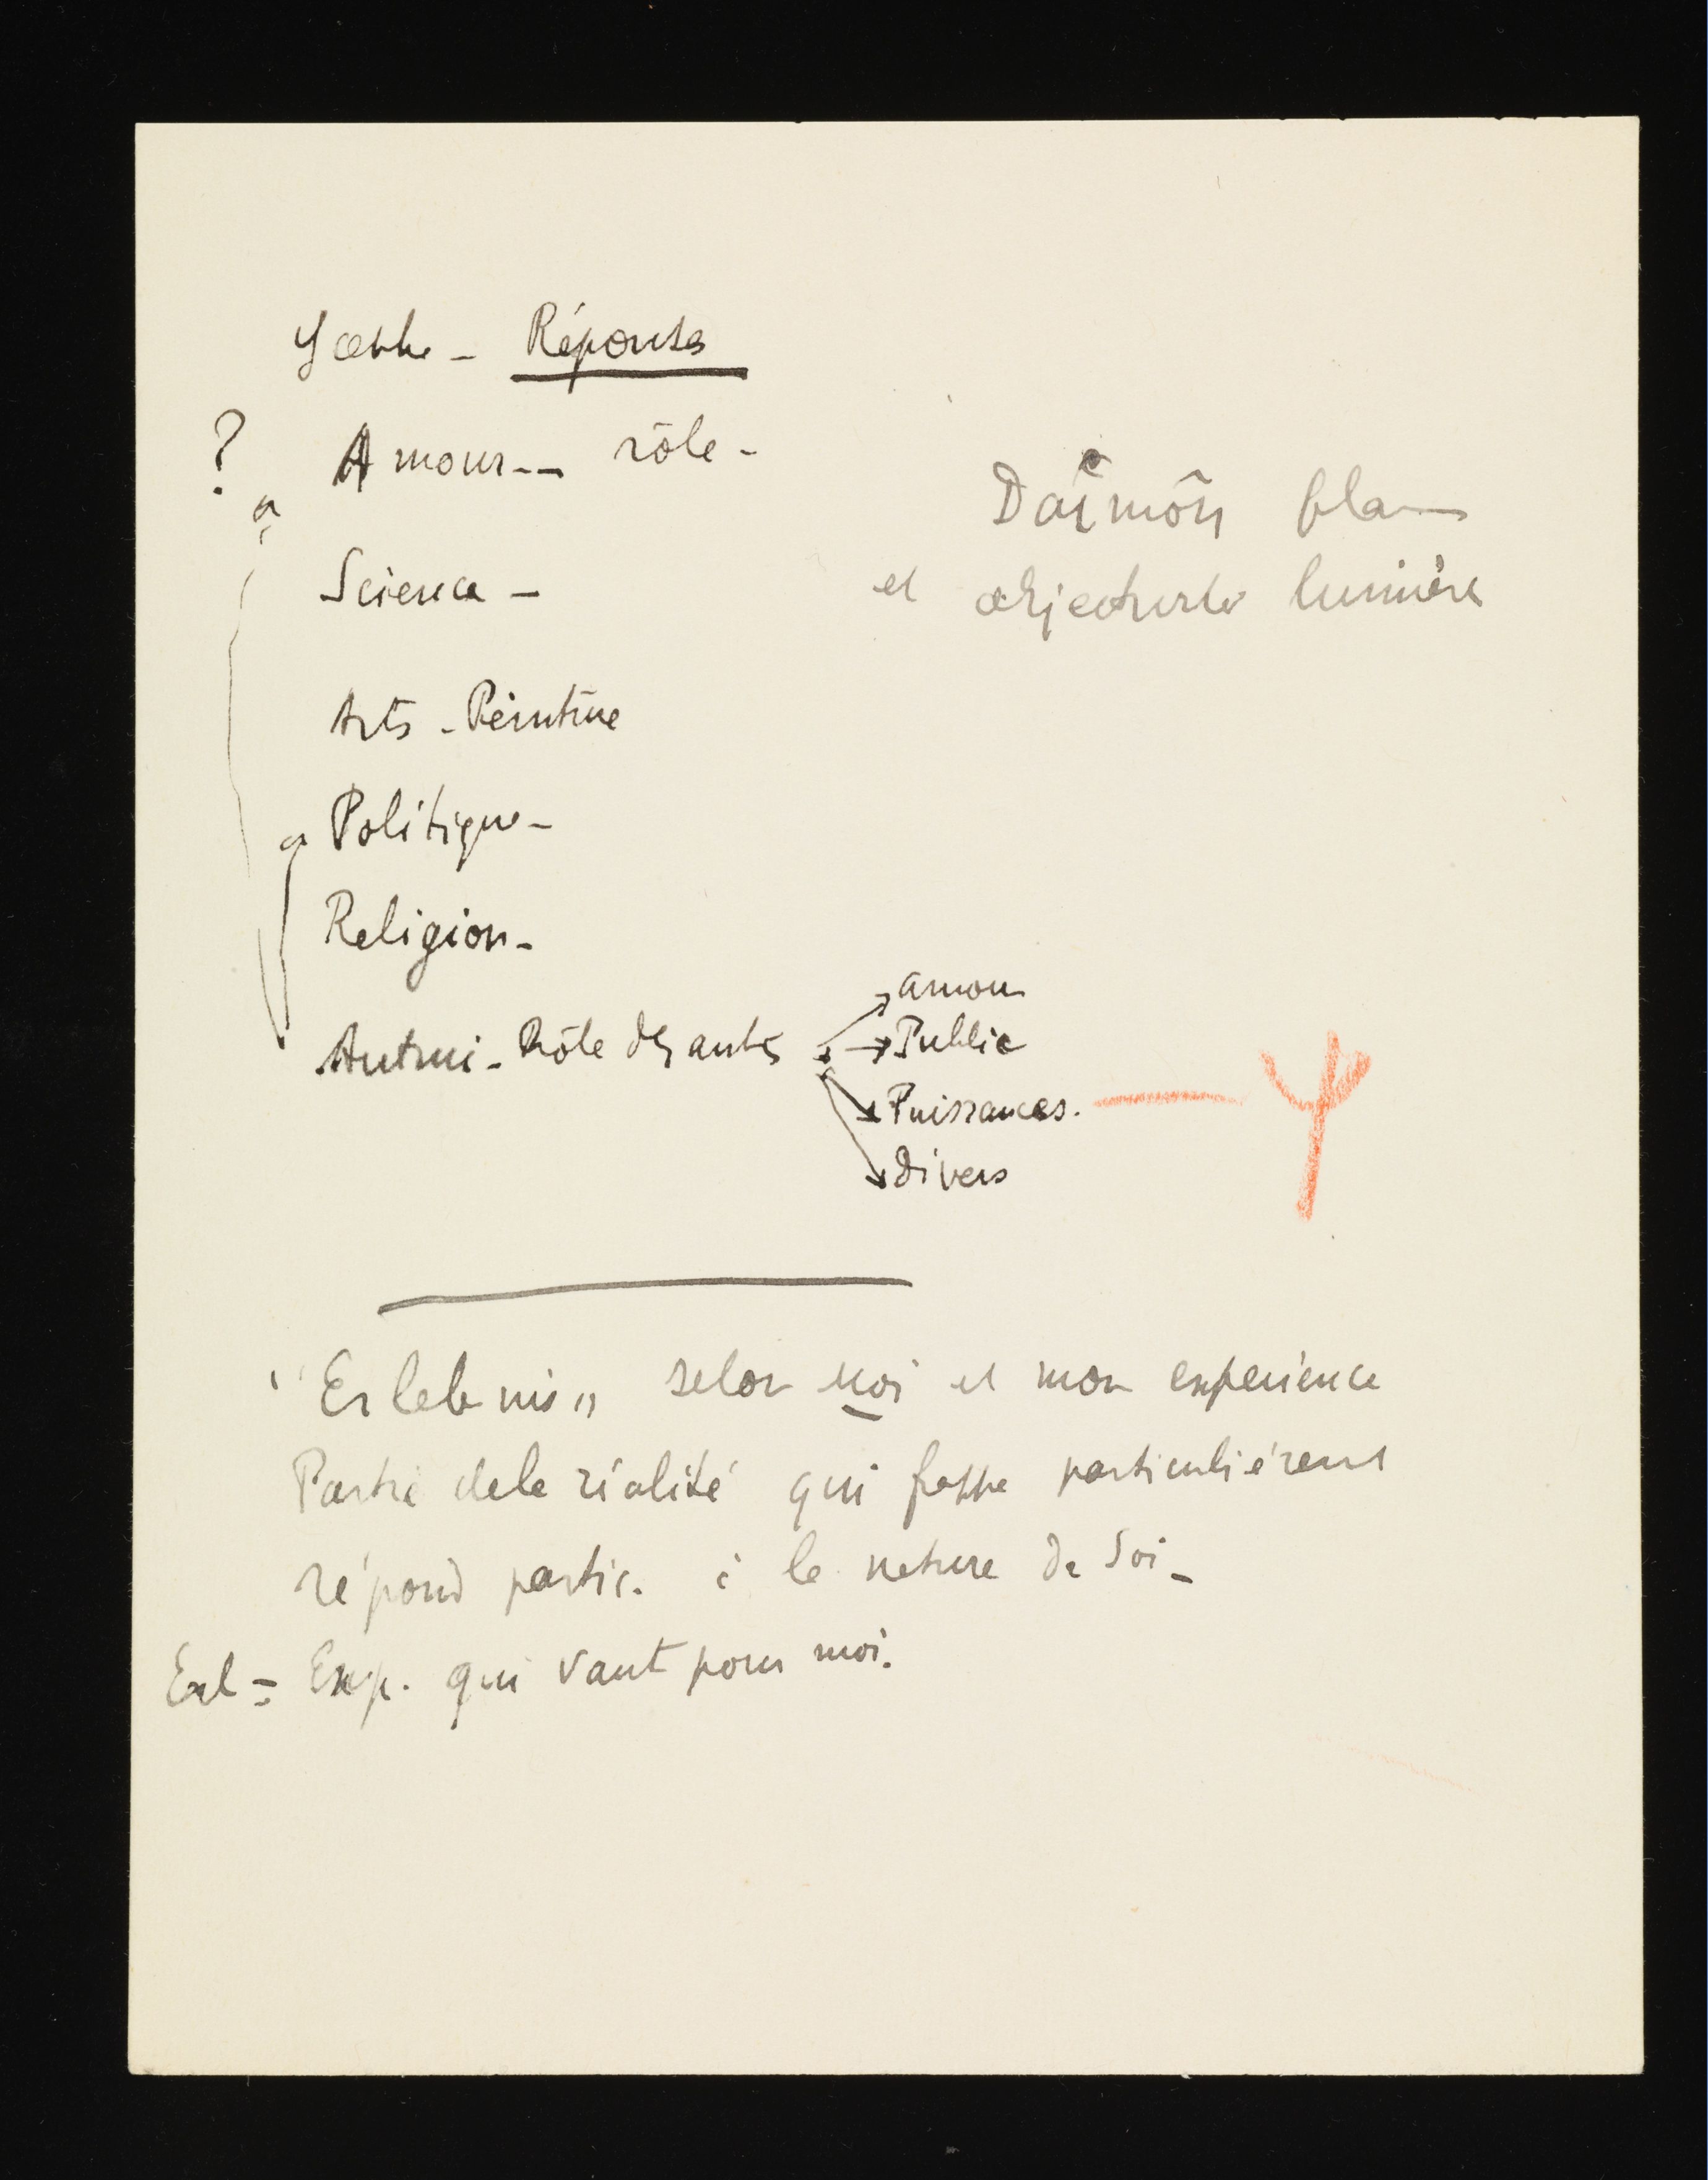 Gœthe - Réponses
? Amour -- rôle -
Daïmôn
et objectivité lumière
Science -
Arts - Peinture
Politique -
Religion -
Autrui - Rôle des autres
amour
Public
Puissances.
Divers
"Erlebnis" selon moi et mon expérience
Partie de la réalité qui frappe particulièremt
répond partic. à la nature de Soi -
Erl = Exp. qui vaut pour moi.